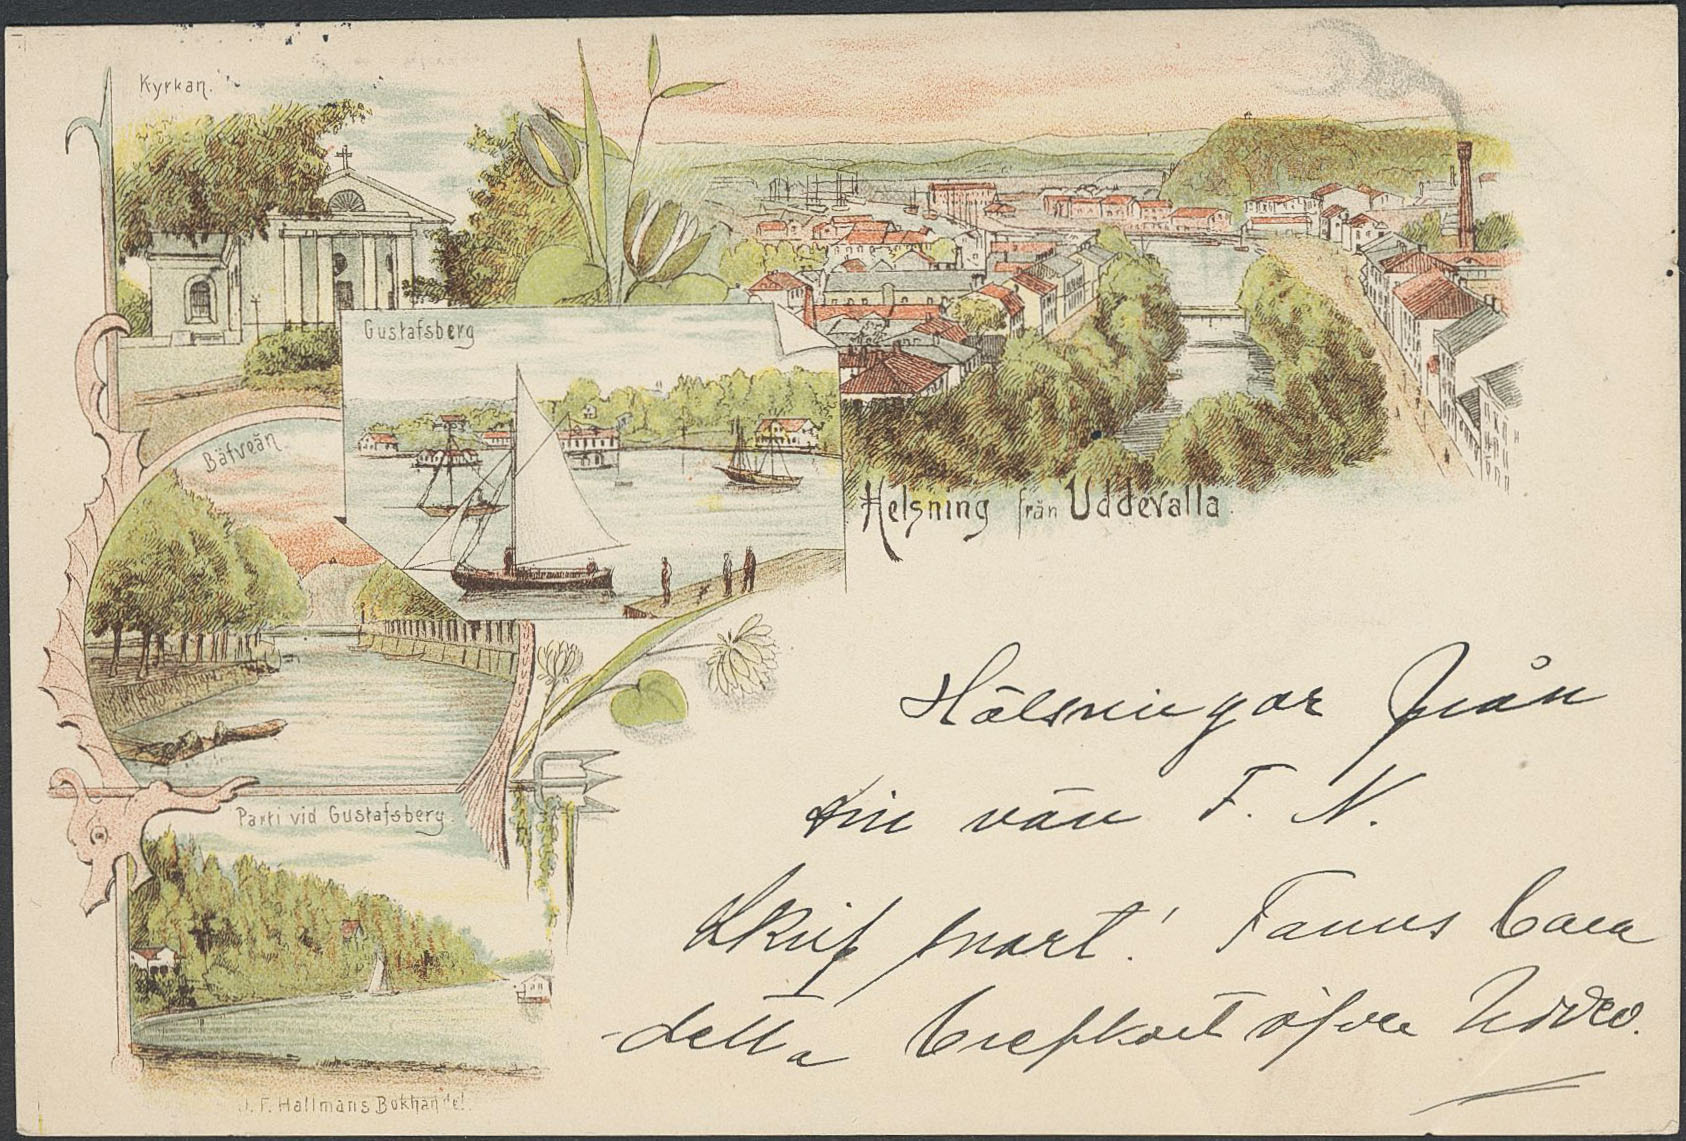 Kyrkan.
Gustafsberg
Bäfveån
Helsning från Uddevalla.
Parti vid Gustafsberg.
J. F. Hallmans Bokhandel.
Hälsningar från
din vän F. N.
Skrif snart! Fanns bara
detta brefkort öfver